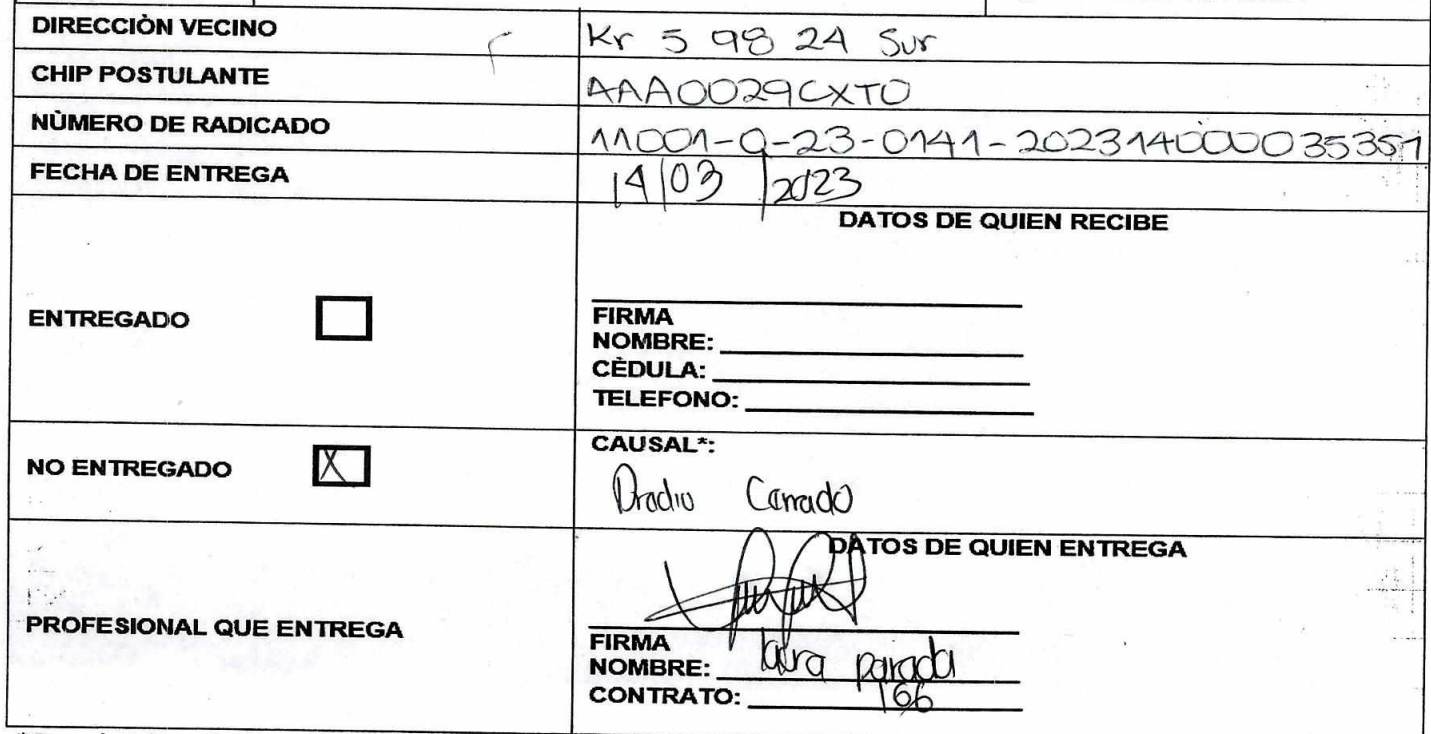 DIRECCIÒN VECINO Kr 5 98 24 Sur
CHIP POSTULANTE AAA0029CXTO
NÙMERO DE RADICADO 11001-0-23-0141-20231400003535 1
FECHA DE ENTREGA 14/03/2023
DATOS DE QUIEN RECIBE
ENTREGADO
FIRMA
NOMBRE:
CÈDULA:
TELEFONO:
NO ENTREGADO X
CAUSAL*:
Predio Cerrado
DATOS DE QUIEN ENTREGA
PROFESIONAL QUE ENTREGA
FIRMA
NOMBRE: laura parada
CONTRATO: 166